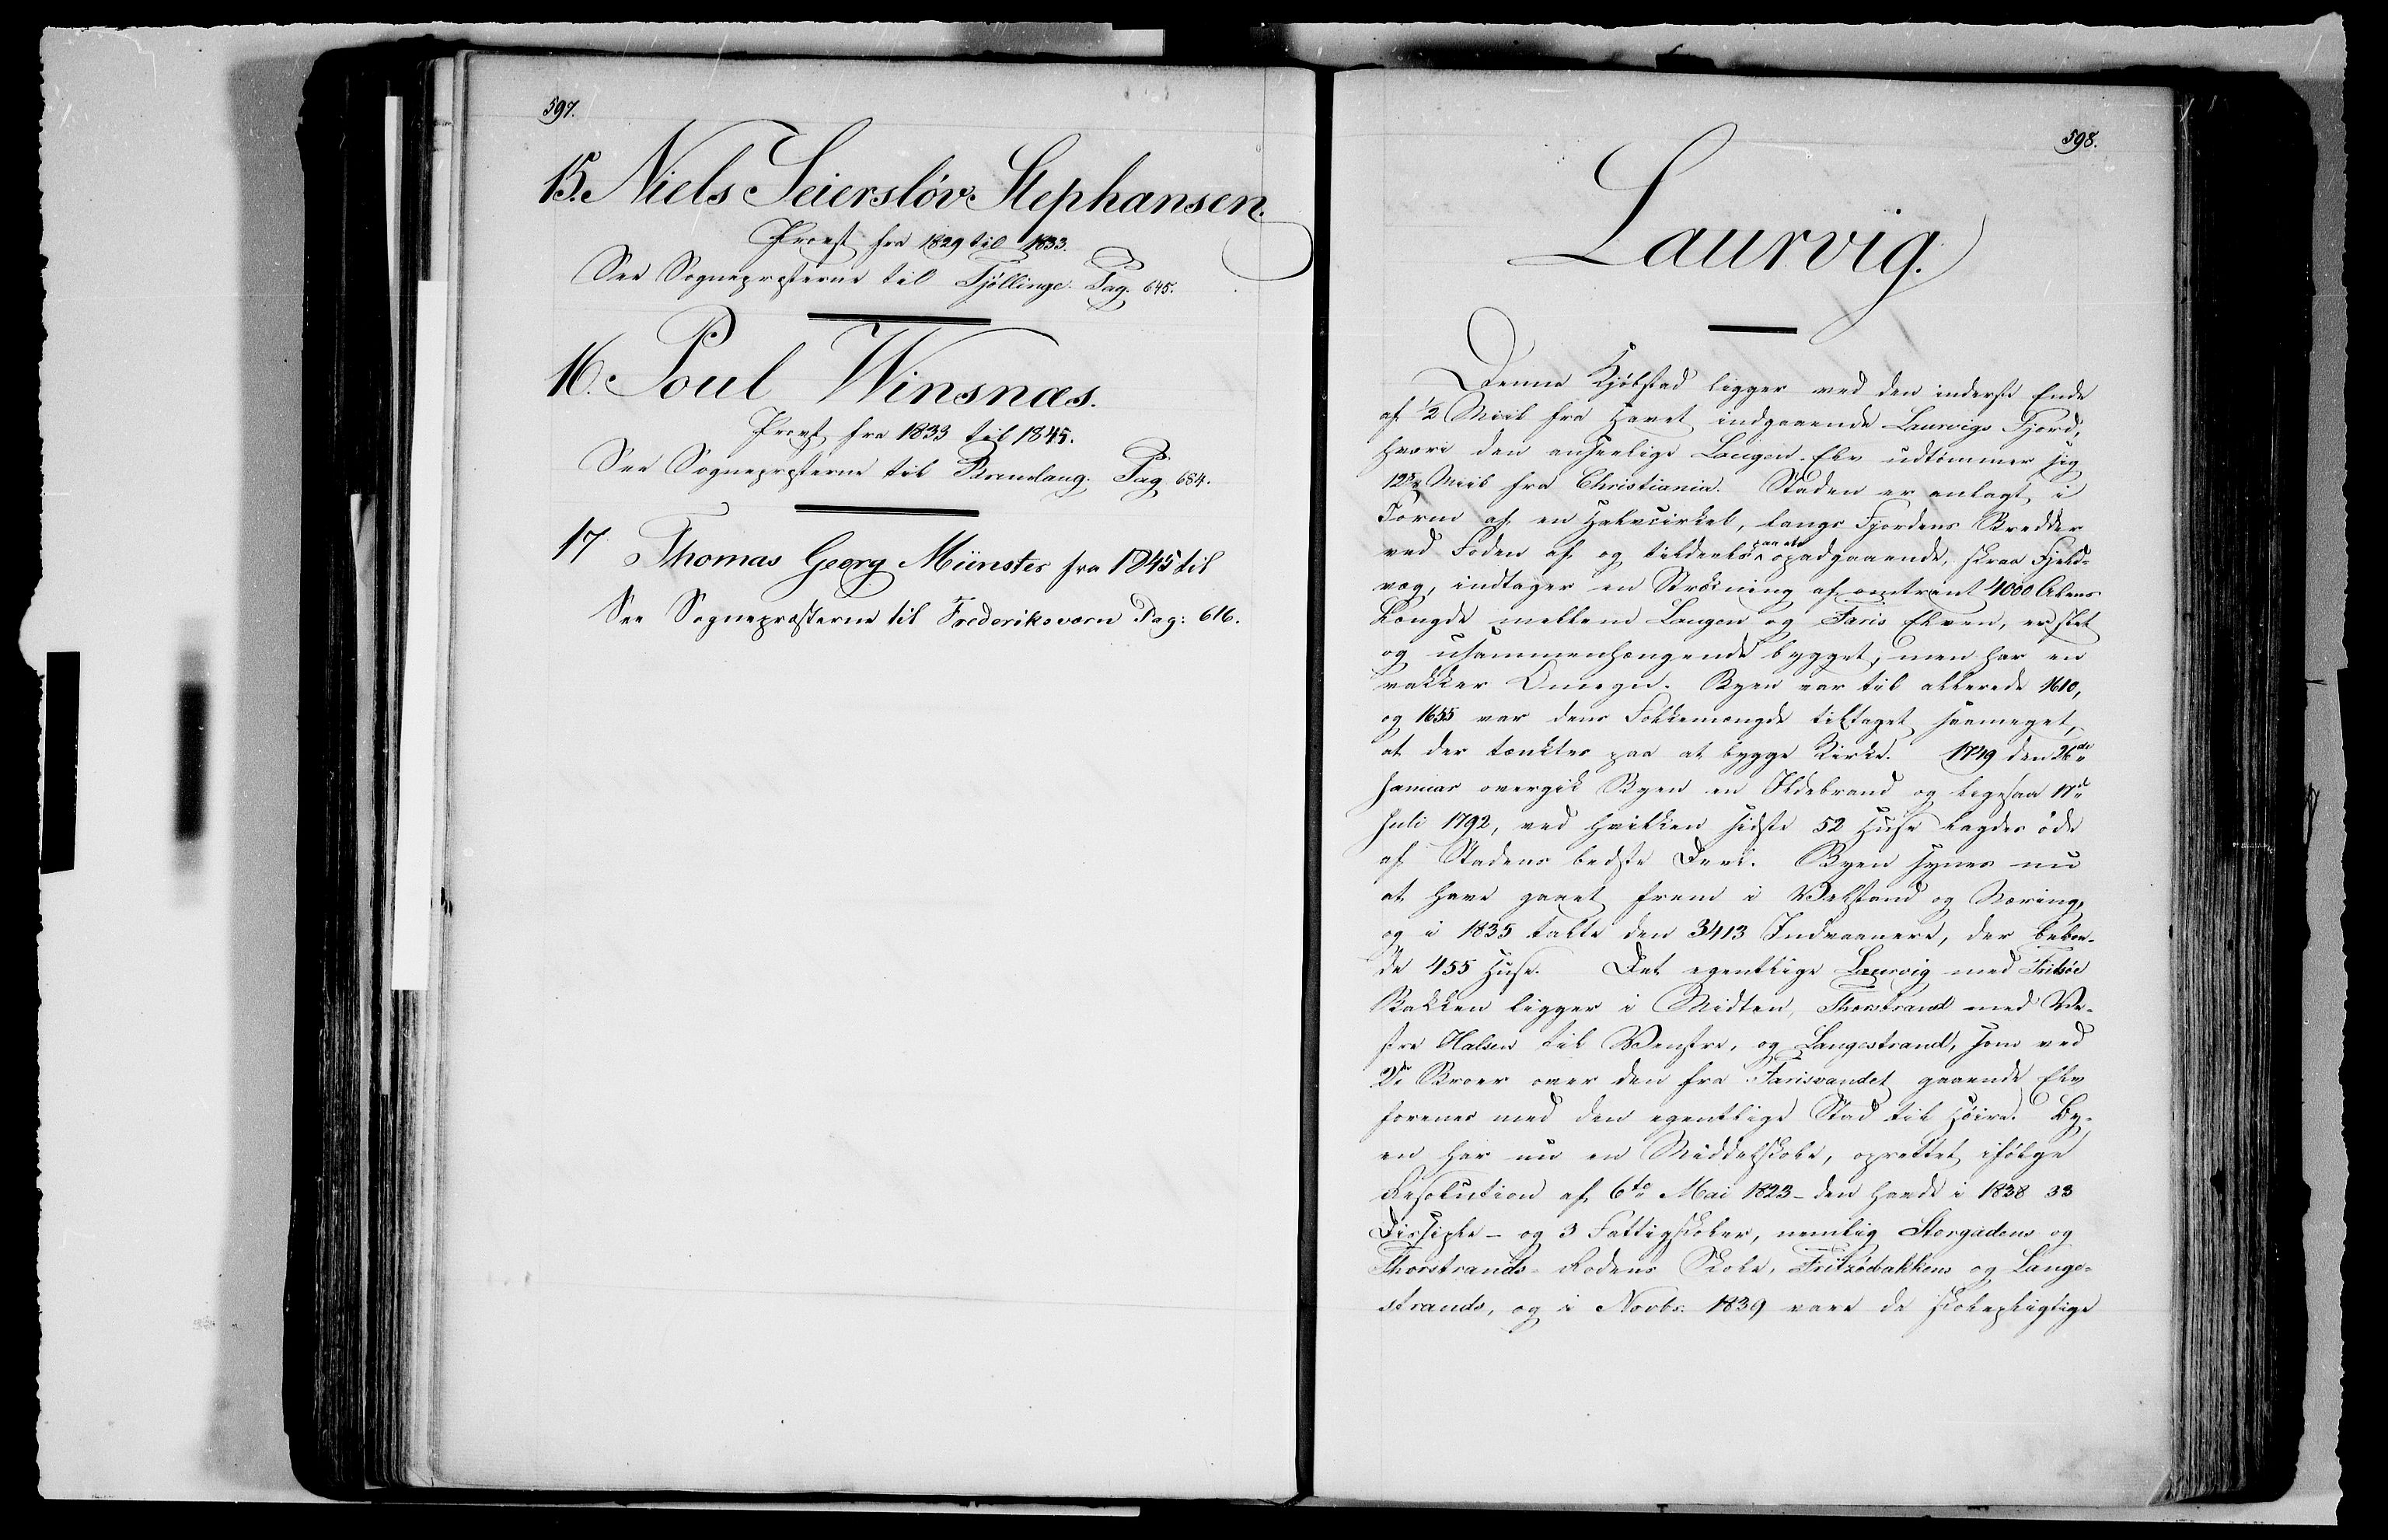 597.
15. Niels Seiersløv Stephansen.
Provst fra 1829 til 1833.
See Sognepræsterne til Tjøllinge. Pag. 645.
16. Poul Winsnæs.
Provst fra 1833 til 1845.
See Sognepræsterne til Brundlaug. Pag 684.
17 Thomas Georg Münster fra 1845 til
See Sognepræsterne til Frederiksværn Pag: 616.
598.
Laurvig.
Denne Kjøbstad ligger ved den inderste Ende
af ½ Miil fra Havet indgaaende Laurvigs Fjord,
hvori den anseelige Laugen-Elv udtømmer sig
Miil fra Christiania. Staden er anlagt i
Form af en Halvcirkel, langs Fjordens Bredder
ved Foden af og tildeels paa et opadgaaende, skraa Fjeld-
væg, indtager en Strækning af omtrent 4000 Alens
Længde mellem Laugen og Faris Elven, er slet
og usammenhængende bygget, men har en
vakker Omegn. Byen var til allerede 1610,
og 1655 var dens Folkemængde tiltaget saameget,
at der tænktes paa at bygge Kirke. 1749 den 26de
Januar overgik Byen en Ildebrand og ligesaa 17de
Juli 1792, ved hvilken sidste 52 Huse lagdes øde
af Stadens bedste Deel. Byen synes nu
at have gaaet frem i Velstand og Næring,
og i 1835 talte den 3413 Indvaanere, der beboe-
de 455 Huse. Det egentlige Laurvig med Fritsøe
Bakken ligger i Midten, Thorstrand med Ve-
stre Halsen til Venstre, og Langestrand, som ved
2de Broer over den fra Farisvandet gaaende Elv
forenes med den egentlige Stad til Høire. By-
en har nu en Middelskole, oprettet ifølge
Resolution af 6te Mai 1823 - den havde i 1838 33
Disciple - og 3 Fattigskoler, nemlig Storgadens og
Thorstrands-Rodens Skole, Fritzöebakkens og Lange-
strands, og i Novbr. 1839 vare de skolepligtige